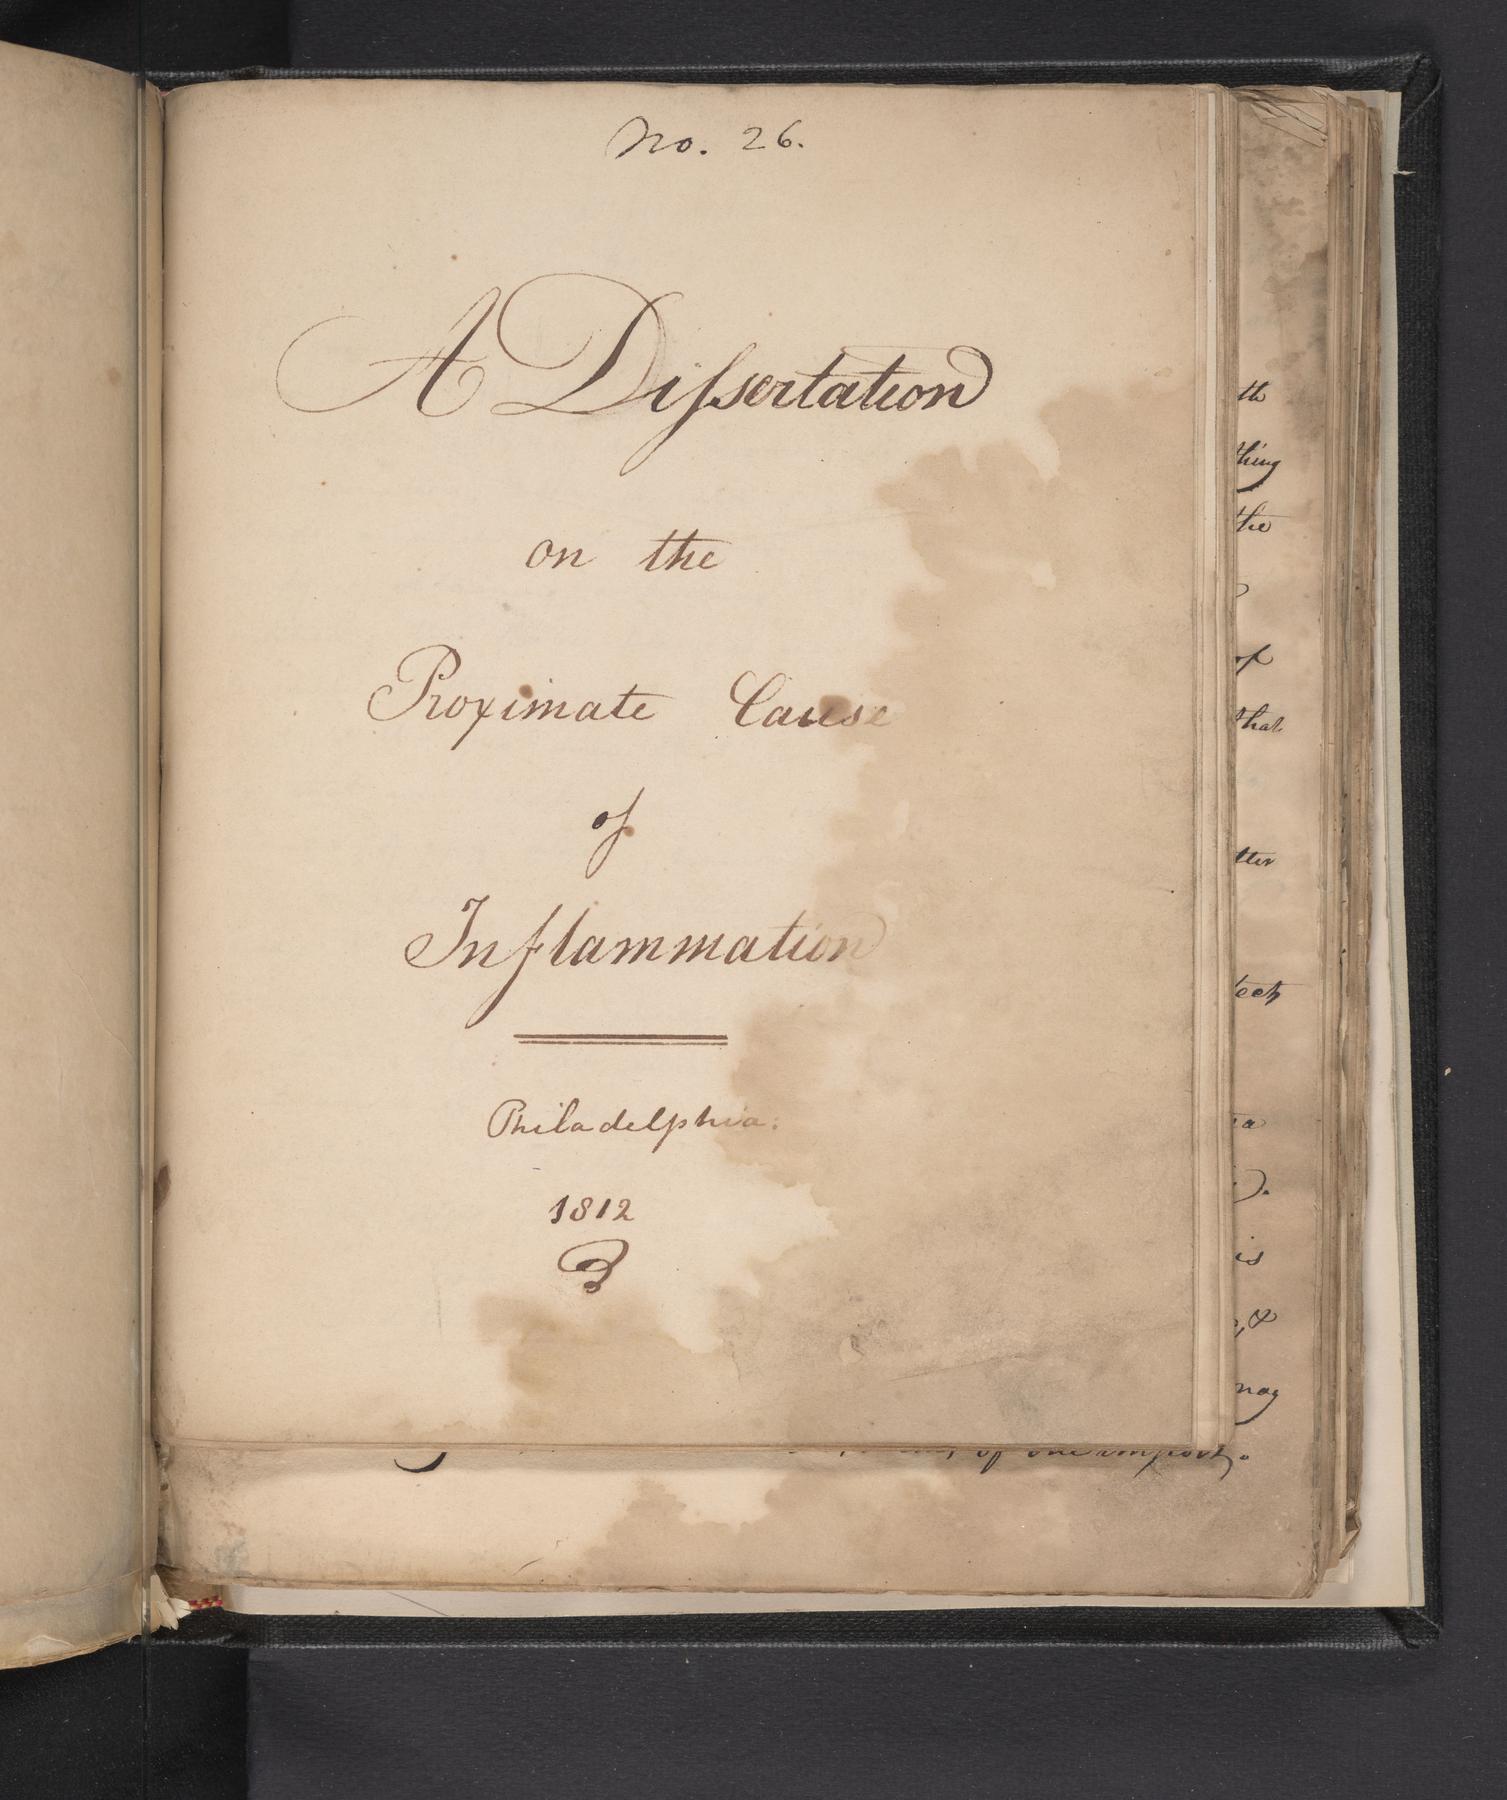 No. 26.
A Dissertation
on the
Proximate Cause
of
Inflammation
Philadelphia:
1812
th
thing
the
of
that
tter
is
&
may
of one import.